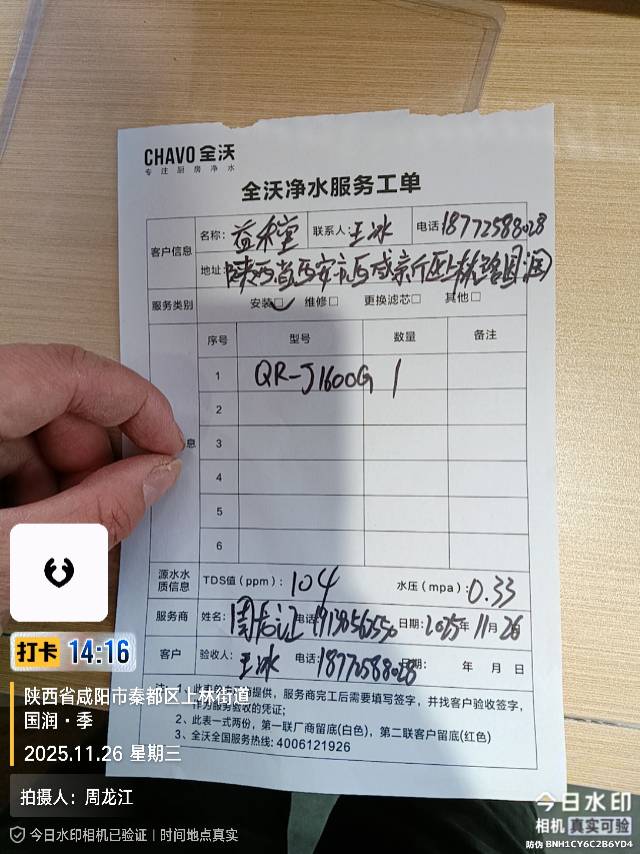 CHAVO 全沃
专注厨房净水
全沃净水服务工单
客户信息
名称：益禾堂 联系人：王冰 电话 18772588028
地址：陕西省西安市西咸新区上林路国润
服务类别 安装□✓ 维修□ 更换滤芯□ 其他□
序号 型号 数量 备注
1 QR-J1600G 1
2
3
息
4
5
6
源水水质信息 TDS值（ppm）：104 水压（mpa）：0.33
服务商 姓名：周龙江 电话 日期：2025年11月26
客户 验收人：王冰 电话：18772588028 日期： 年 月 日
注：1、此 提供，服务商完工后需要填写签字，并找客户验收签字，
作为服务验收的凭证；
2、此表一式两份，第一联厂商留底(白色)，第二联客户留底(红色)
3、全沃全国服务热线：4006121926
打卡 14:16
陕西省咸阳市秦都区上林街道
国润·季
2025.11.26 星期三
拍摄人：周龙江
今日水印相机已验证｜时间地点真实
今日水印
相机 真实可验
防伪 BNH1CY6C2B6YD4